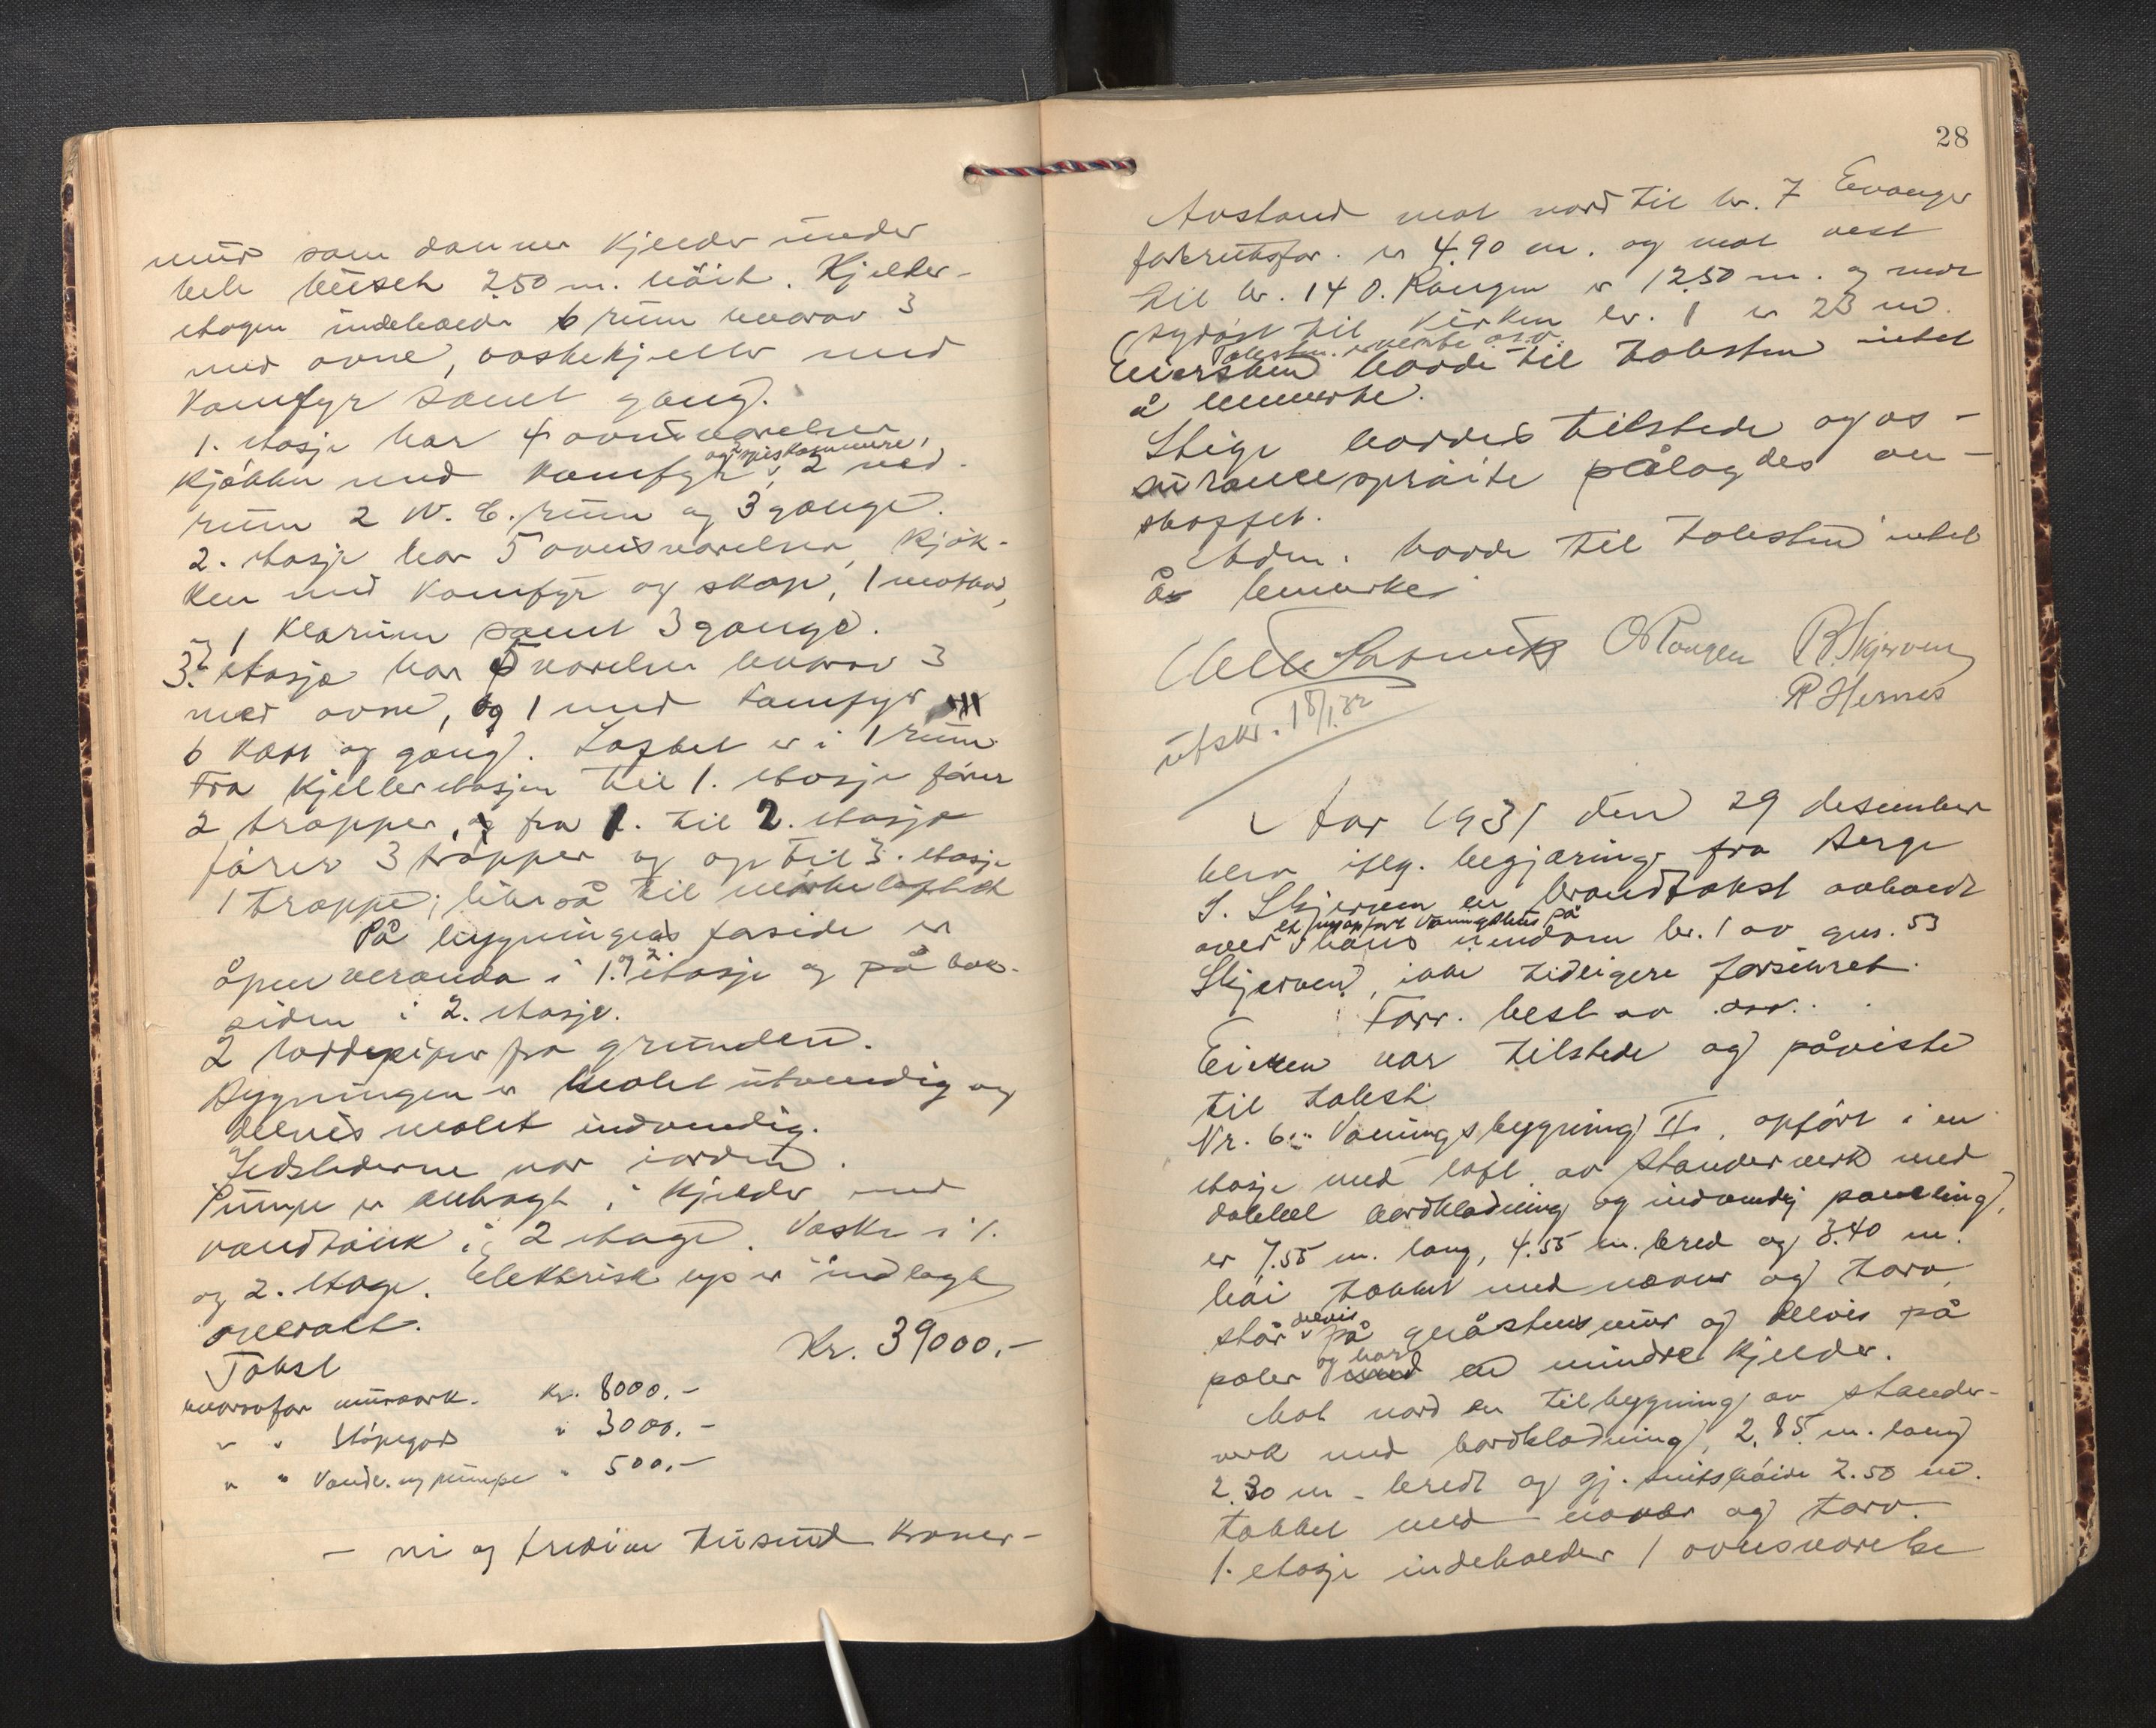 mur som danner kjelder under
hele huset 2.50 m. höit. Kjelder-
etagen indeholder 6 rum hvorav 3
med ovne, vaskekjeller med
komfyr samt gang.
1. etasje har 4 ovnsværelser,
kjökken med komfyr og spiskammere, 2 mad-
rum 2 W.C. rum og 3 gange.
2. etasje har 5 ovnsværelser, kjök-
ken med komfyr og skap, 1 matbod,
1 klærum samt 3 gange.
3. etasje har 5 værelser hvorav 3
med ovne, og 1 med komfyr
6 kott og gang. Loftet er i 1 rum
Fra kjelleretasjen til 1. etasje förer
2 trapper, og fra 1. til 2. etasje
förer 3 trapper og op til 3. etasje
1 trappe; likeså til mörkeloftet
På bygningens forside er
åpen veranda i 1. og 2. etasje og på bak-
siden i 2. etasje.
2 haddepiper fra grunden.
Bygningen er malet utvendig og
delvis malet indvendig.
Ildstederne var i orden.
Pumpe er anbragt i kjelder med
vandtank i 2 etage. Vaske i 1.
og 2. etage. Elektrisk lys er indlagt
overalt.
Takst Kr. 39000.-
hvorav for murverk. Kr. 8000.-
" " Stöpegods " 3000.-
" " Vandl. og pumpe " 500.-
- ni og tredive tusund kroner -
28
Avstand mot nord til br. 7 Evanger
forbruksfor. er 4.90 m. og mot vest
til br. 14 O. Rongen er 12.50 m. og mot
sydöst til kirken br. 1 er 23 m.
Eiersken havde til taksten intet
å bemerke.
Stige havdes tilstede og as-
suransespröite pålagdes an-
skaffet.
Adm. havde til taksten intet
å bemerke
O Rongen R. Skjerven
R Hernes
utskr. 18/1.32
Aar 1931 den 29 desember
blev iflg. begjæring fra Berge
S. Skjerven en brandtakst avholdt
over et nyopfört våningshus på hans eiendom br. 1 av gnr. 53
Skjerven, ikke tidligere forsikret.
Forr. best av osv.
Eieren var tilstede og påviste
til takst
Nr. 6. Våningsbygning II, opfört i en
etasje med loft av stenderverk med
dobbel bordklædning og indvendig paneling,
er 7.55 m. lang, 4.55 m. bred og 3.40 m.
höi takket med næver og torv,
står delvis på gråstensmur og delvis på
påler og har en mindre kjelder.
Mot nord en tilbygning av stender-
verk med bordklædning, 2.85 m. lang
2.30 m. bredt og gj. snitshöide 2.50 m.
takket med næver og torv.
1. etasje indeholder 1 ovnsværelse